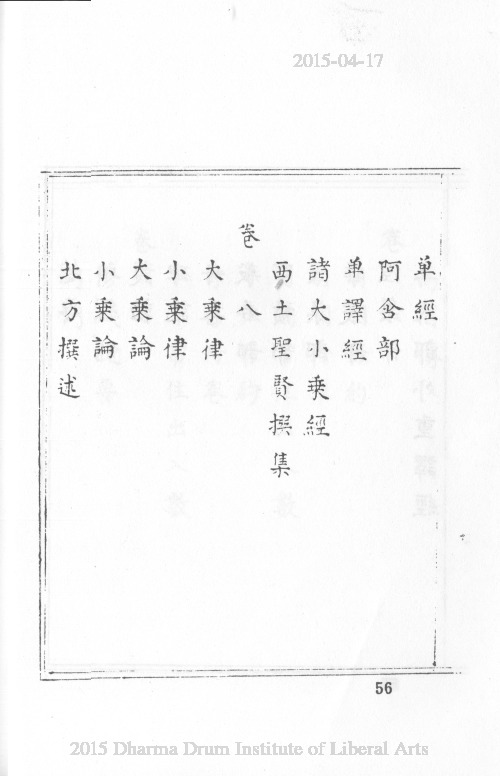 2015-04-17
单經
阿含部
单譯經
諸大小乘經
西土聖賢撰集
卷八
大乘律
小乘律
大乘論
小乘論
北方撰述
56
2015 Dharma Drum Institute of Liberal Arts